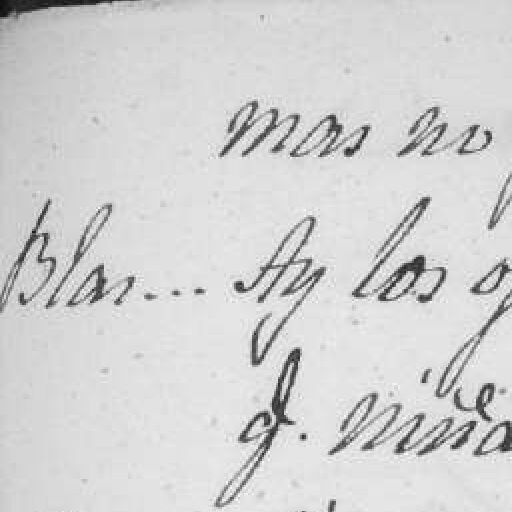 mas no
Blas... Ay los
q. niña